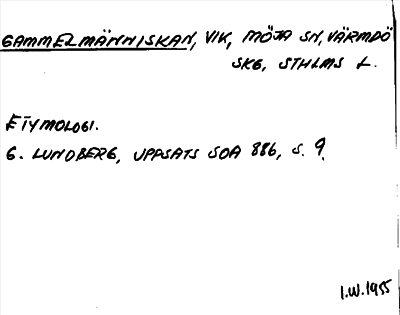 GAMMELMÄNNISKAN, VIK, MÖJA SN, VÄRMDÖ
SKG, STHLMS L.
ETYMOLOGI.
G. LUNDBERG, UPPSATS SOA 886, S. 9.
I.W. 1955